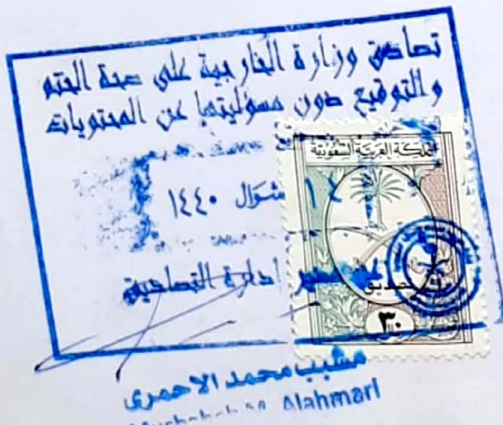 تصادق وزارة الخارجية على صحة الختم
والتوقيع دون مسؤليتها عن المحتويات
المملكة العربية السعودية
١٤ شوال ١٤٤٠
مدير إدارة التصاديق
٣٠
مشبب محمد الاحمري
Alahmari